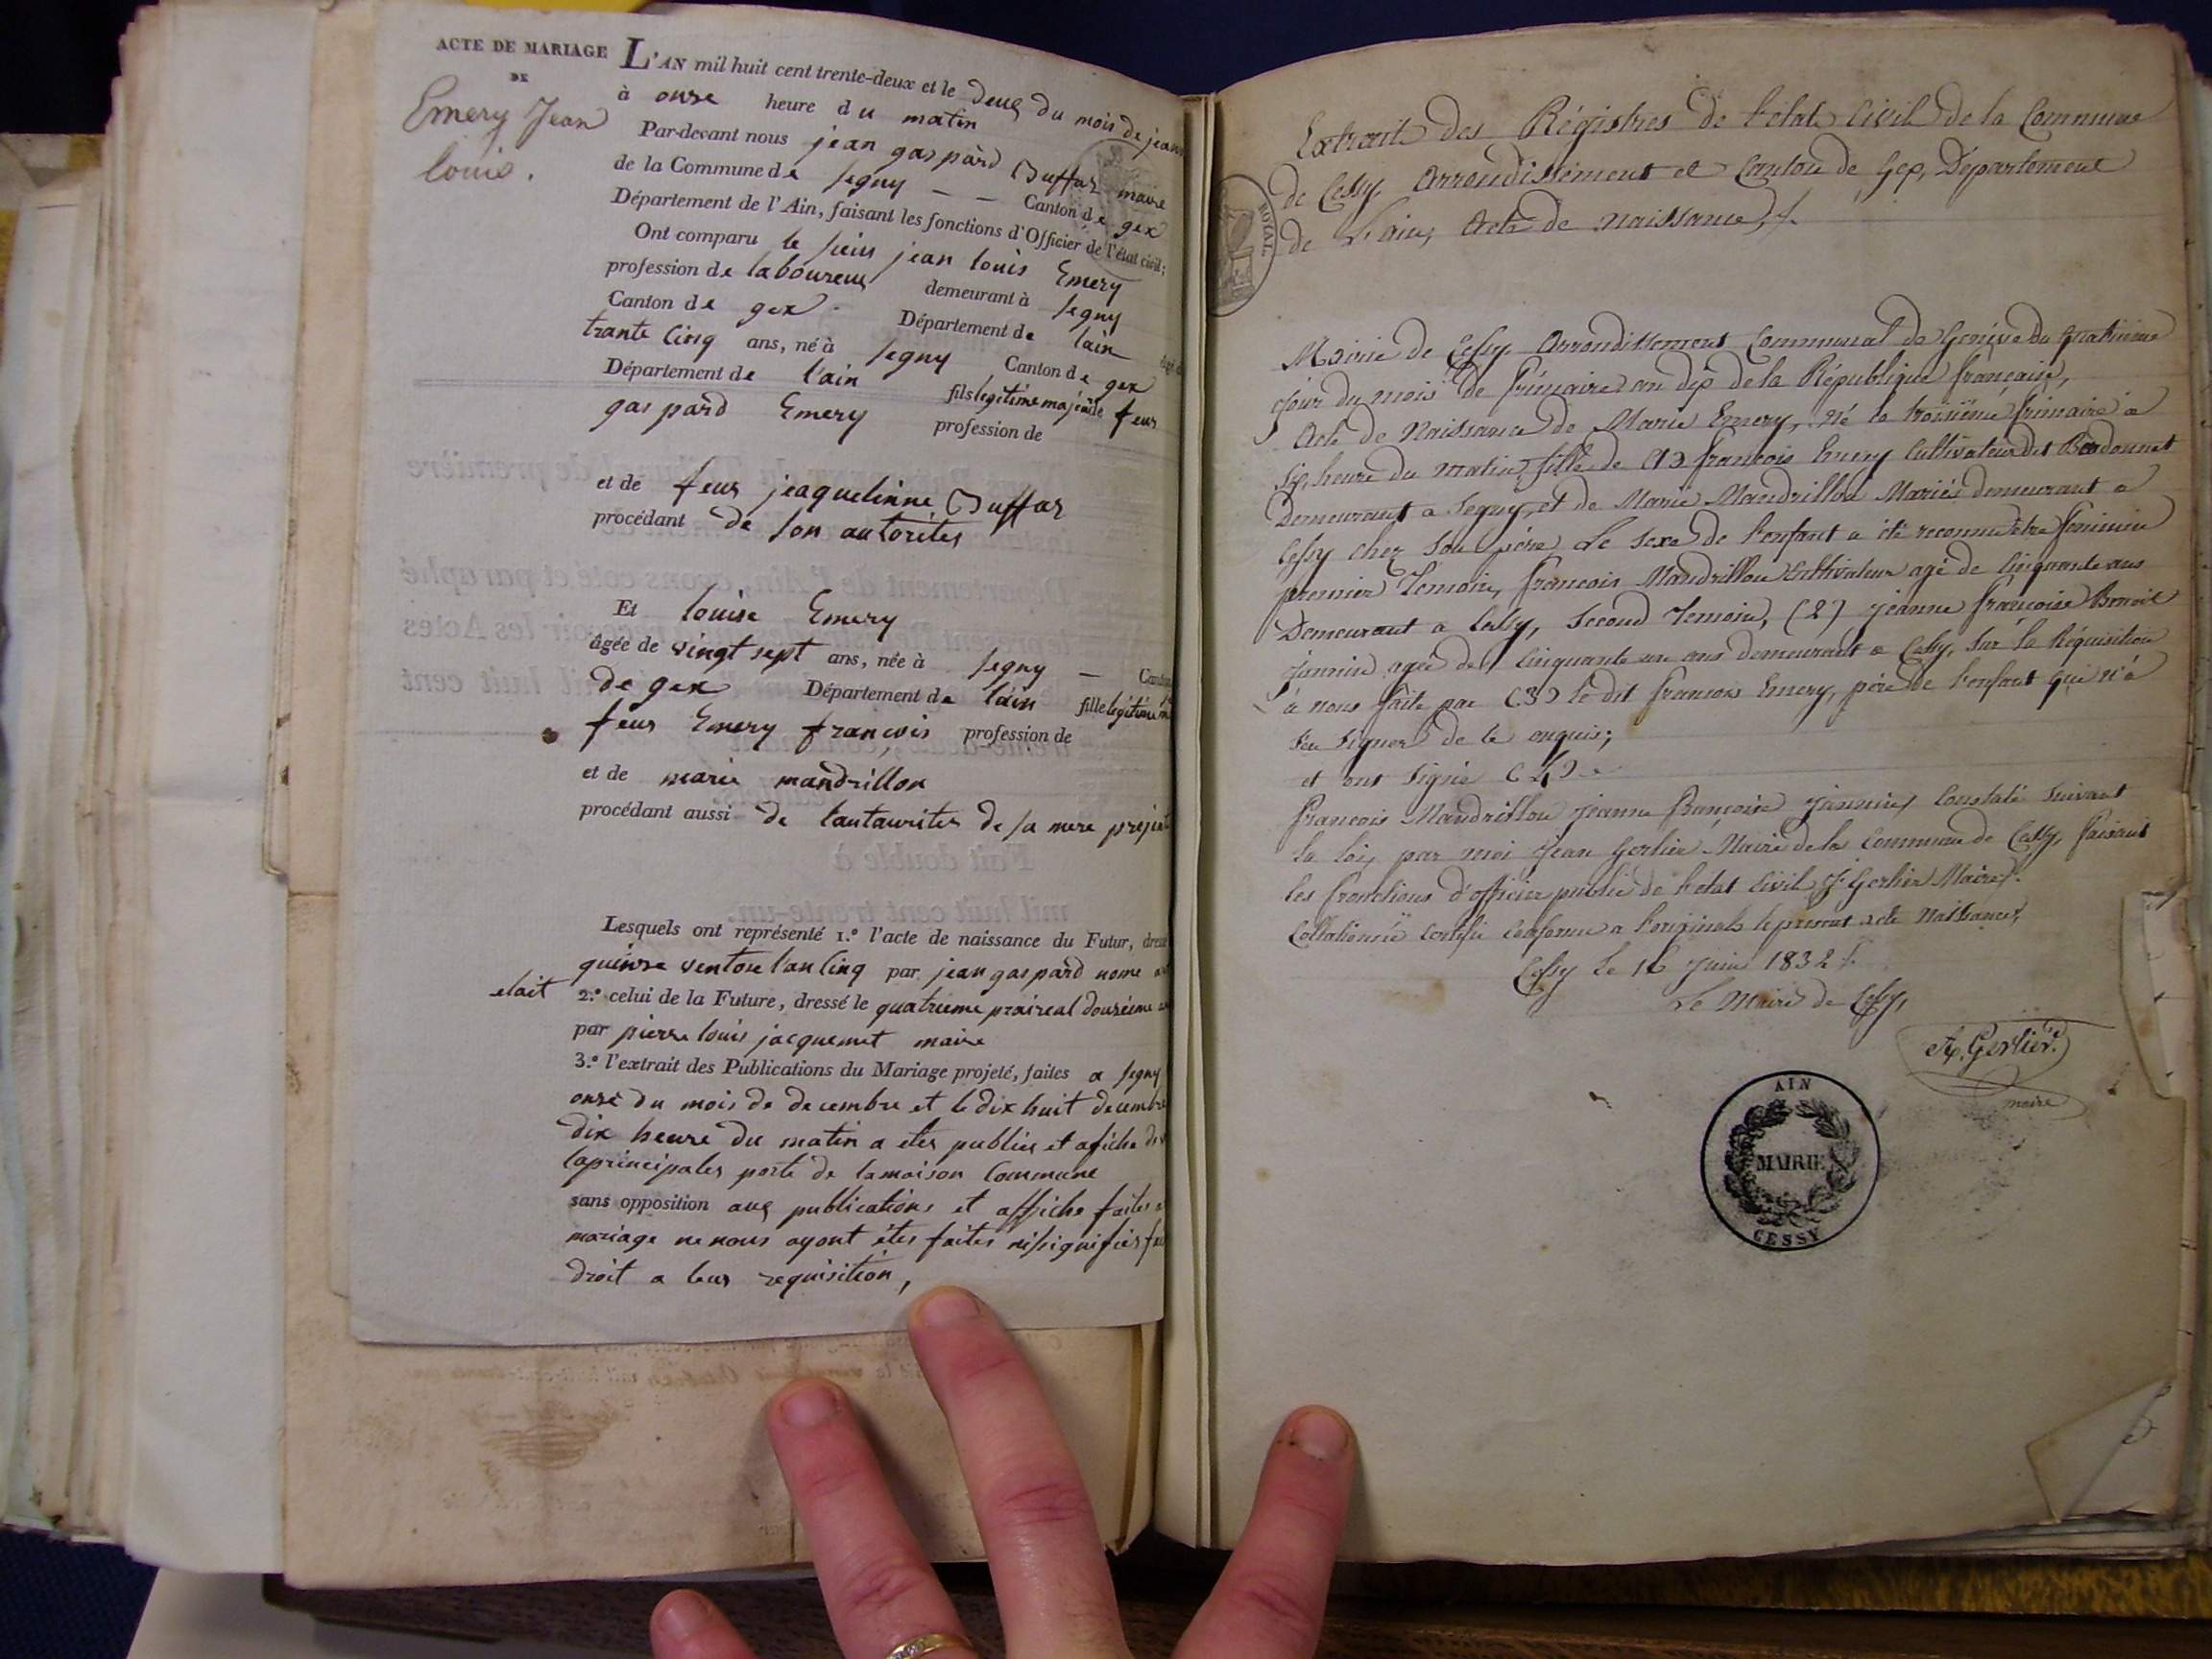 ACTE DE MARIAGE
DE
Emery Jean
louis.
L'AN mil huit cent trente-deux et le deux du mois de jean
à onze heure du matin
Par-devant nous jean gaspard Duffar maire
de la Commune de Segny — — Canton de gex
Département de l'Ain, faisant les fonctions d'Officier de l'état civil;
Ont comparu le sieur jean louis Emery
profession de laboureur demeurant à segny
Canton de gex Département de lain
trante Cinq ans, né à segny Canton de gex
Département de l'ain fils legitime majeur de feur
gaspard Emery profession de
et de feur jeaquelinne Duffar
procédant de son autorites
Et louise Emery
âgée de vingt sept ans, née à segny — Canton
de gex Département de lain fille legitime
feur Emery francois profession de
et de marie mandrillon
procédant aussi de lautaurites de sa mere
Lesquels ont représenté 1.º l'acte de naissance du Futur, dressé
quinse ventose l'an Cinq par jean gaspard nome
etait 2.º celui de la Future, dressé le quatrieme praireal douzieme
par pierre louis jacquemet maire
3.º l'extrait des Publications du Mariage projeté, faites a segny
onze du mois de decembre et le dix huit decembre
dix heure du matin a etes publies et afiche
laprincipales porte de lamaison Commune
sans opposition aux publications et affiche faites
mariage ne nous ayont étes faites nisignifies
droit a leur requisition,
Extrait des Régistres de l'état Civil de la Commune
de Cessy, Arrondissement et Canton de Gex, Département
de L'ain, Acte de Naissance,
ROYAL
Mairie de Cessy Arrondissement Communal de Genève du quatrième
jour du mois de frimaire an dix de la République française,
Acte de Naissance de Marie Emery, Né le troisième frimaire a
six heure du matin, fille de (1) françois Emery Cultivateur
Demeurant a Segny, et de Marie Mandrillon Mariés demeurant a
Cessy chez son père, Le Sexe de l'enfant a été reconnu être féminin
premier Témoin, françois Mandrillon Cultivateur agé de Cinquante ans
Demeurant a Cessy, Second Temoin, (2) Jeanne françoise Benoit
Jannin agée de Cinquante un ans demeurant a Cessy, Sur la Réquisition
à nous faite par (3) le dit francois Emery, père de l'enfant qui n'a
seu signer de le enquis;
et ont signé (4)
francois Mandrillon Jeanne françoise Jannin, Constaté Suivant
la loi, par moi Jean Gerlier Maire de la Commune de Cessy, faisant
les fonctions d'officier public de l'etat Civil, J. Gerlier Maire.
Collationné Certifié Conforme a l'original le present acte Naissance,
Cessy Le 16 Juin 1832
Le Maire de Cessy,
Gerlier.
maire
AIN
MAIRIE
CESSY